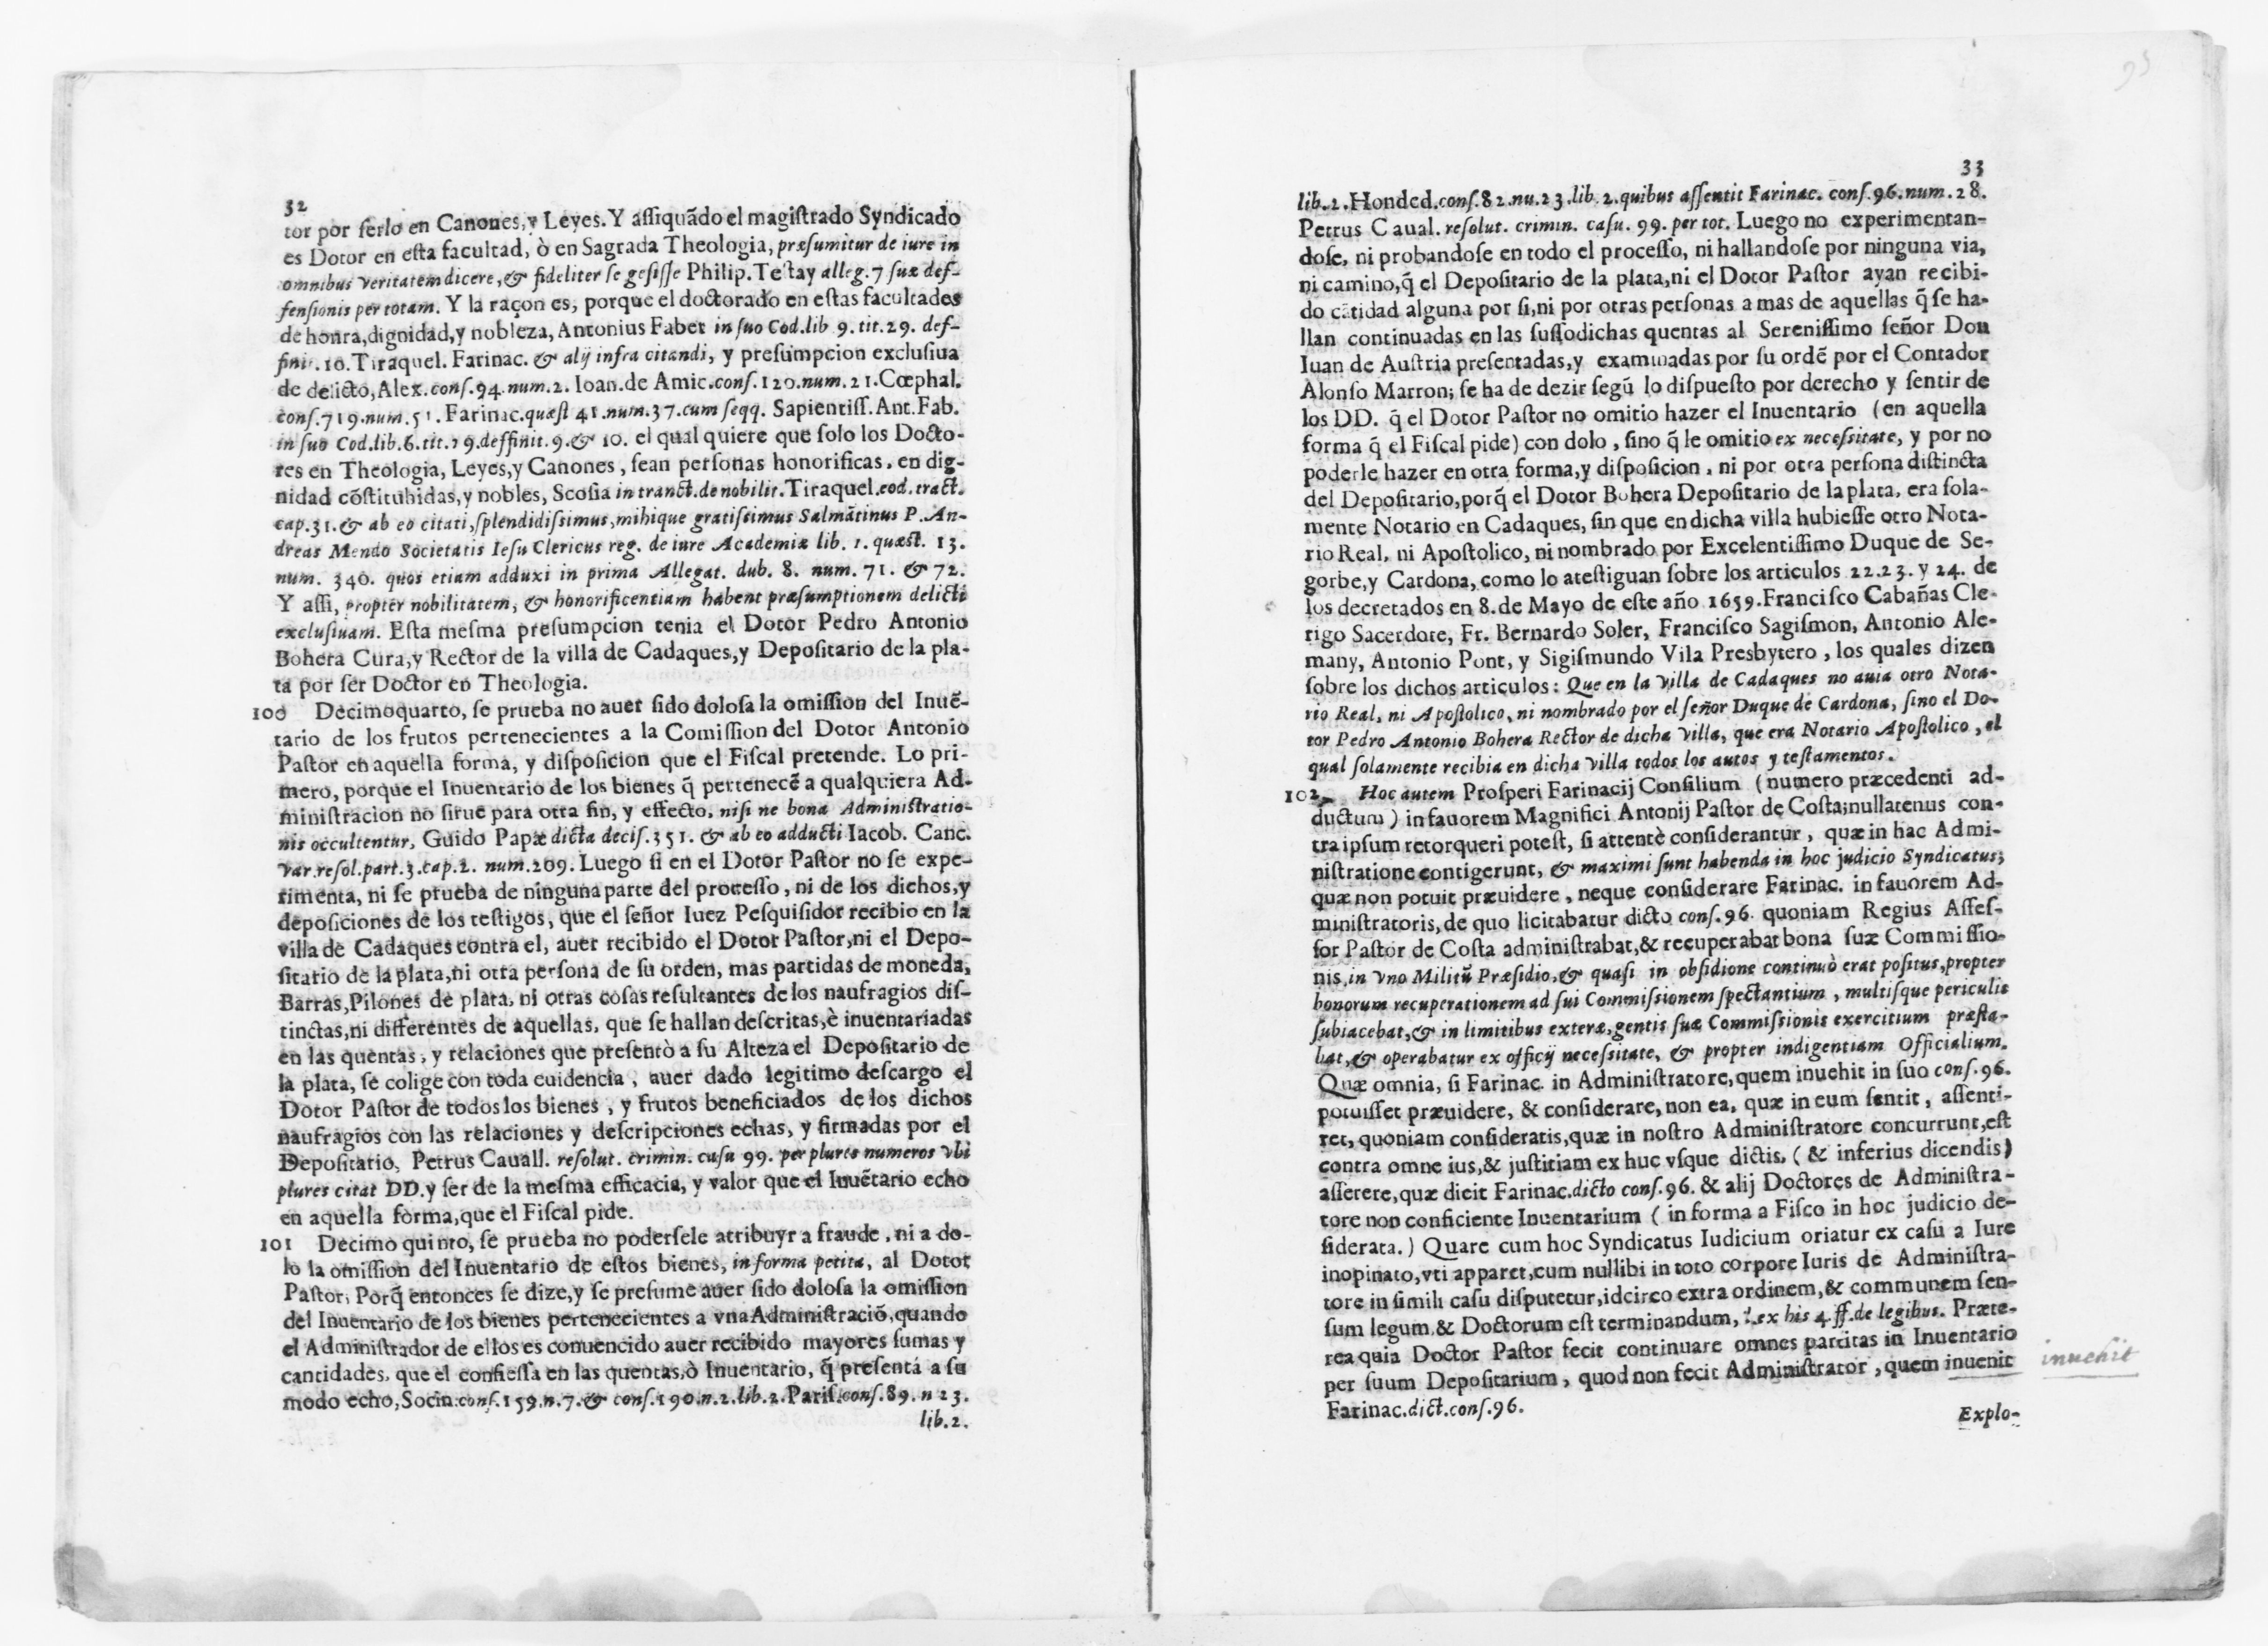 32
tor por serlo en Canones, y Leyes. Y assiquãdo el magistrado Syndicado
es Dotor en esta facultad, ò en Sagrada Theologia, præsumitur de iure in
omnibus veritatem dicere, & fideliter se gesisse Philip. Testay alleg. 7 suæ def-
fensionis per totam. Y la raçon es, porque el doctorado en estas facultades
de honra, dignidad, y nobleza, Antonius Faber in suo Cod. lib 9. tit. 29. def-
finit. 10. Tiraquel. Farinac. & alij infra citandi, y presumpcion exclusiua
de delicto, Alex. cons. 94. num. 2. Ioan. de Amic. cons. 120. num. 21. Cœphal.
cons. 719. num. 51. Farinac. quæst 41. num. 37. cum seqq. Sapientiss. Ant. Fab.
in suo Cod. lib. 6. tit. 19. deffinit. 9. & 10. el qual quiere que solo los Docto-
res en Theologia, Leyes, y Canones, sean personas honorificas, en dig-
nidad cõstituhidas, y nobles, Scosia in tranct. de nobilit. Tiraquel. eod. tract.
cap. 31. & ab eo citati, splendidissimus, mihique gratissimus Salmãtinus P. An-
dreas Mendo Societatis Iesu Clericus reg. de iure Academiæ lib. 1. quæst. 13.
num. 340. quos etiam adduxi in prima Allegat. dub. 8. num. 71. & 72.
Y assi, propter nobilitatem, & honorificentiam habent præsumptionem delicti
exclusiuam. Esta mesma presumpcion tenia el Dotor Pedro Antonio
Bohera Cura, y Rector de la villa de Cadaques, y Depositario de la pla-
ta por ser Doctor en Theologia.
100 Decimoquarto, se prueba no auer sido dolosa la omission del Inuẽ-
tario de los frutos pertenecientes a la Comission del Dotor Antonio
Pastor en aquella forma, y disposicion que el Fiscal pretende. Lo pri-
mero, porque el Inuentario de los bienes q̃ pertenecẽ a qualquiera Ad-
ministracion no sirue para otra fin, y effecto, nisi ne bona Administratio-
nis occultentur, Guido Papæ dicta decis. 351. & ab eo adducti Iacob. Canc.
var. resol. part. 3. cap. 2. num. 209. Luego si en el Dotor Pastor no se expe-
rimenta, ni se prueba de ninguna parte del processo, ni de los dichos, y
deposiciones de los testigos, que el señor Iuez Pesquisidor recibio en la
villa de Cadaques contra el, auer recibido el Dotor Pastor, ni el Depo-
sitario de la plata, ni otra persona de su orden, mas partidas de moneda,
Barras, Pilones de plata, ni otras cosas resultantes de los naufragios dis-
tinctas, ni differentes de aquellas, que se hallan descritas, è inuentariadas
en las quentas, y relaciones que presentò a su Alteza el Depositario de
la plata, se colige con toda euidencia, auer dado legitimo descargo el
Dotor Pastor de todos los bienes, y frutos beneficiados de los dichos
naufragios con las relaciones y descripciones echas, y firmadas por el
Depositario, Petrus Cauall. resolut. crimin. casu 99. per plures numeros vbi
plures citat DD. y ser de la mesma efficacia, y valor que el Inuẽtario echo
en aquella forma, que el Fiscal pide.
101 Decimo quinto, se prueba no podersele atribuyr a fraude, ni a do-
lo la omission del Inuentario de estos bienes, in forma petita, al Dotor
Pastor; Porq̃ entonces se dize, y se presume auer sido dolosa la omission
del Inuentario de los bienes pertenecientes a vna Administraciõ, quando
el Administrador de ellos es conuencido auer recibido mayores sumas y
cantidades, que el confiessa en las quentas, ò Inuentario, q̃ presentá a su
modo echo, Socin. cons. 159. n. 7. & cons. 190. n. 2. lib. 2. Paris. cons. 89. n 23.
lib. 2.
33
lib. 2. Honded. cons. 82. nu. 23. lib. 2. quibus assentit Farinac. cons. 96. num. 28.
Petrus Caual. resolut. crimin. casu. 99. per tot. Luego no experimentan-
dose, ni probandose en todo el processo, ni hallandose por ninguna via,
ni camino, q̃ el Depositario de la plata, ni el Dotor Pastor ayan recibi-
do cãtidad alguna por si, ni por otras personas a mas de aquellas q̃ se ha-
llan continuadas en las sussodichas quentas al Serenissimo señor Don
Iuan de Austria presentadas, y examinadas por su ordẽ por el Contador
Alonso Marron; se ha de dezir segũ lo dispuesto por derecho y sentir de
los DD. q̃ el Dotor Pastor no omitio hazer el Inuentario (en aquella
forma q̃ el Fiscal pide) con dolo, sino q̃ le omitio ex necessitate, y por no
poderle hazer en otra forma, y disposicion, ni por otra persona distincta
del Depositario, porq̃ el Dotor Bohera Depositario de la plata, era sola-
mente Notario en Cadaques, sin que en dicha villa hubiesse otro Nota-
rio Real, ni Apostolico, ni nombrado por Excelentissimo Duque de Se-
gorbe, y Cardona, como lo atestiguan sobre los articulos 22. 23. y 24. de
los decretados en 8. de Mayo de este año 1659. Francisco Cabañas Cle-
rigo Sacerdote, Fr. Bernardo Soler, Francisco Sagismon, Antonio Ale-
many, Antonio Pont, y Sigismundo Vila Presbytero, los quales dizen
sobre los dichos articulos: Que en la villa de Cadaques no auia otro Nota-
rio Real, ni Apostolico, ni nombrado por el señor Duque de Cardona, sino el Do-
tor Pedro Antonio Bohera Rector de dicha villa, que era Notario Apostolico, el
qual solamente recibia en dicha villa todos los autos y testamentos.
102 Hoc autem Prosperi Farinacij Consilium (numero præcedenti ad-
ductum) in fauorem Magnifici Antonij Pastor de Costa; nullatenus con-
tra ipsum retorqueri potest, si attentè considerantur, quæ in hac Admi-
nistratione contigerunt, & maximi sunt habenda in hoc judicio Syndicatus;
quæ non potuit præuidere, neque considerare Farinac. in fauorem Ad-
ministratoris, de quo licitabatur dicto cons. 96. quoniam Regius Asses-
sor Pastor de Costa administrabat, & recuperabat bona suæ Commissio-
nis, in vno Militũ Præsidio, & quasi in obsidione continuò erat positus, propter
bonorum recuperationem ad sui Commissionem spectantium, multisque periculis
subiacebat, & in limitibus exteræ, gentis suæ Commissionis exercitium præsta-
bat, & operabatur ex officij necessitate, & propter indigentiam Officialium.
Quæ omnia, si Farinac. in Administratore, quem inuehit in suo cons. 96.
potuisset præuidere, & considerare, non ea, quæ in eum sentit, assenti-
ret, quoniam consideratis, quæ in nostro Administratore concurrunt, est
contra omne ius, & justitiam ex huc vsque dictis, (& inferius dicendis)
asserere, quæ dicit Farinac. dicto cons. 96. & alij Doctores de Administra-
tore non conficiente Inuentarium (in forma a Fisco in hoc judicio de-
siderata.) Quare cum hoc Syndicatus Iudicium oriatur ex casu a Iure
inopinato, vti apparet, cum nullibi in toto corpore Iuris de Administra-
tore in simili casu disputetur, idcirco extra ordinem, & communem sen-
sum legum & Doctorum est terminandum, l. ex his 4. ff. de legibus. Præte-
rea quia Doctor Pastor fecit continuare omnes partitas in Inuentario
per suum Depositarium, quod non fecit Administrator, quem inuenit
inuehit
Farinac. dict. cons. 96.
Explo-